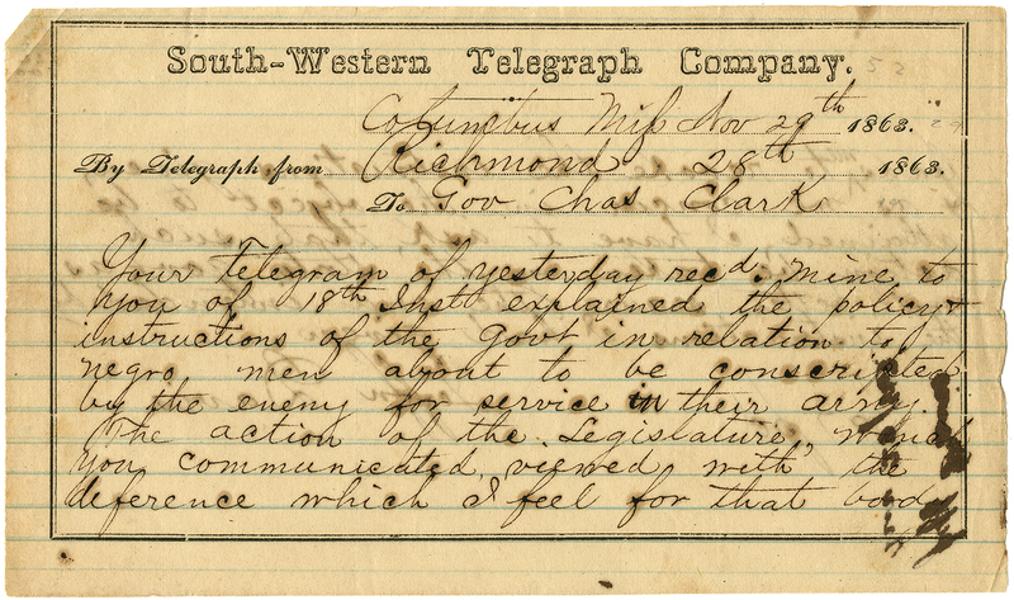 South-Western Telegraph Company.
Columbus Miss Nov 29th 1863.
By Telegraph from Richmond 28th 1863.
To Gov Chas Clark
Your Telegram of yesterday recd. mine to
you of 18th Inst explained the policy &
instructions of the Govt in relation to
negro men about to be conscripted
by the enemy for service in their army.
The action of the Legislature, which
you communicated, viewed with the
deference which I feel for that body